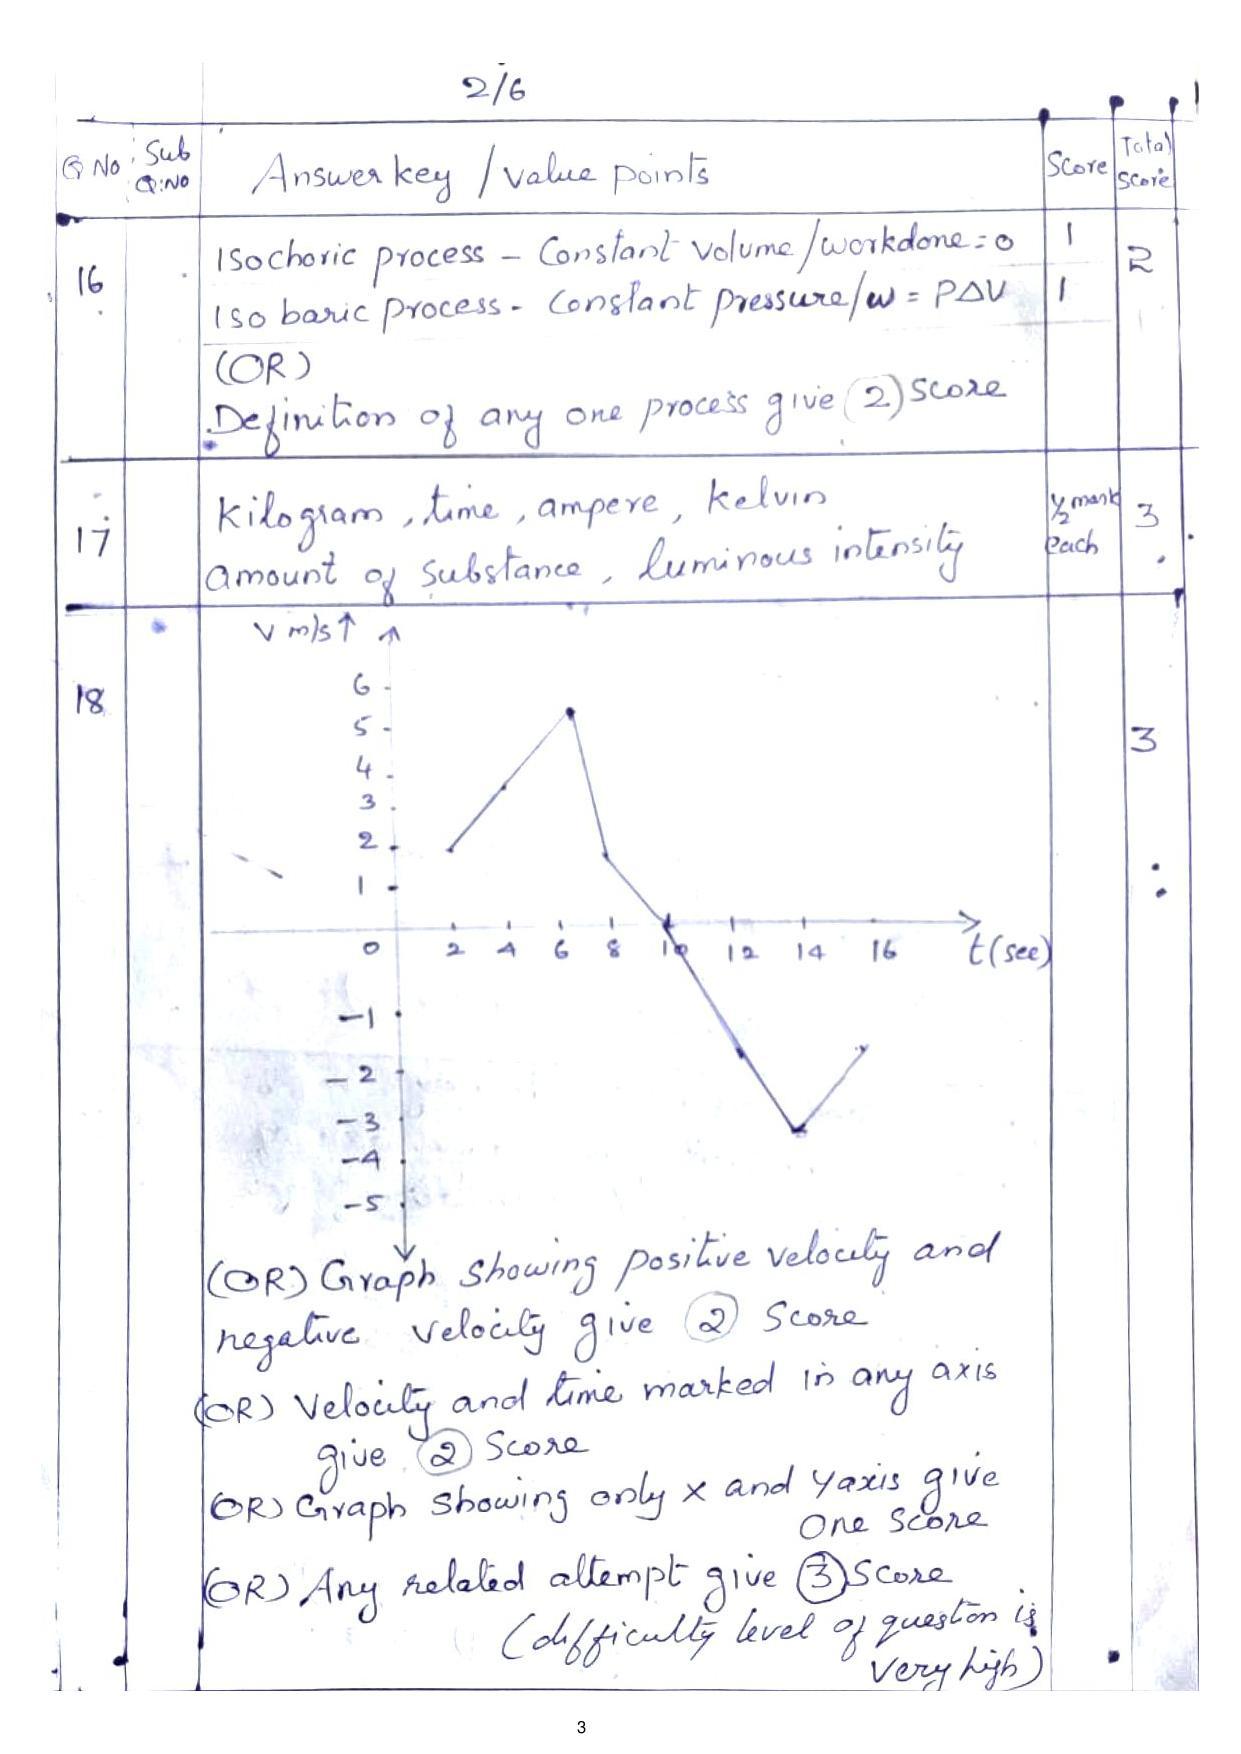 2/6
Q No Sub Q:No Answer key / value points Score Total Score
16 Isochoric process - Constant volume/workdone = 0 1 2
Iso baric process - Constant pressure/w = PΔV 1
(OR)
Definition of any one process give (2) score
17 Kilogram, time, ampere, kelvin ½ mark each 3
amount of substance, luminous intensity
18 3
V m/s ↑
6
5
4
3
2
1
0 2 4 6 8 10 12 14 16 t(sec)
-1
-2
-3
-4
-5
(OR) Graph showing positive velocity and
negative velocity give (2) score
(OR) Velocity and time marked in any axis
give (2) score
(OR) Graph showing only x and y axis give
One score
(OR) Any related attempt give (3) score
(difficulty level of question is
very high)
3